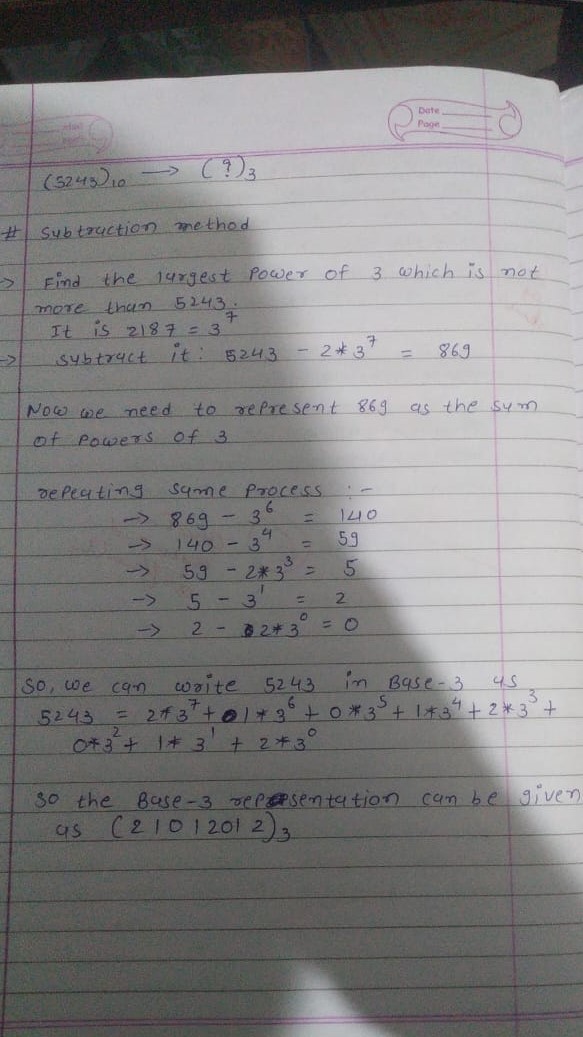 Date
Page
(5243)₁₀ → (?)₃
# subtraction method
→ Find the largest power of 3 which is not
more than 5243.
It is 2187 = 3⁷
→ subtract it: 5243 - 2*3⁷ = 869
Now we need to represent 869 as the sum
of powers of 3
repeating same process :-
→ 869 - 3⁶ = 140
→ 140 - 3⁴ = 59
→ 59 - 2*3³ = 5
→ 5 - 3¹ = 2
→ 2 - 2*3⁰ = 0
So, we can write 5243 in Base-3 as
5243 = 2*3⁷ + 1*3⁶ + 0*3⁵ + 1*3⁴ + 2*3³ +
0*3² + 1*3¹ + 2*3⁰
So the Base-3 representation can be given
as (21012012)₃